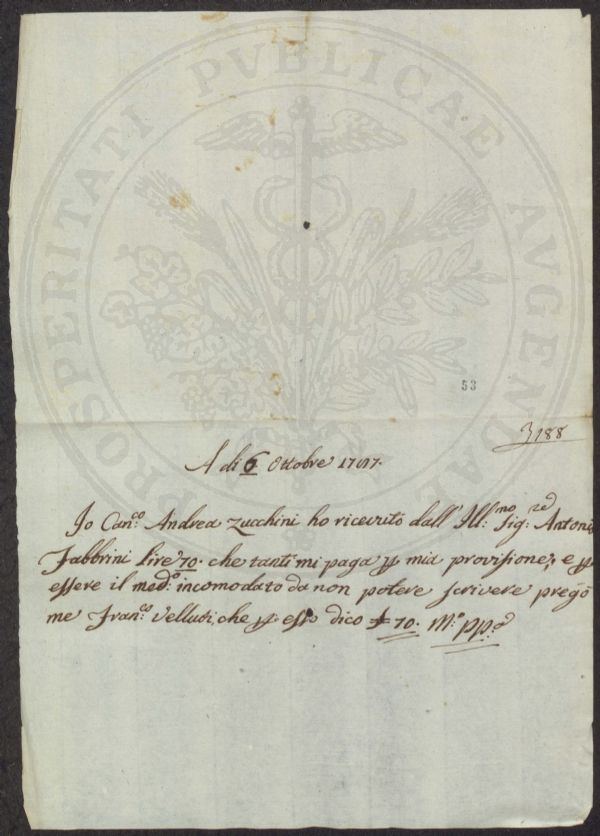 PROSPERITATI PVBLICAE AVGENDAE
53
3188
A di 6 Ottobre 1787.
Io Can.co Andrea Zucchini ho ricevuto dall'Ill:mo Sig:re Antonio
Fabbrini Lire 70. che tanti mi paga p mia provisione; e p
essere il med.o incomodato da non potere scrivere pregò
me Fran.co Velluti, che p esso dico £ 70. M.o pp.a